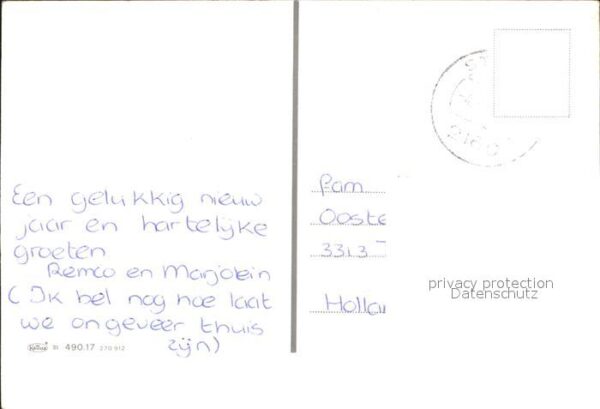 Een gelukkig nieuw
jaar en hartelijke
groeten
Remco en Marjolein
( Ik bel nog hoe laat
we ongeveer thuis
zijn)
490.17 270 912
Fam
Ooste
3313
Hollan
privacy protection
Datenschutz